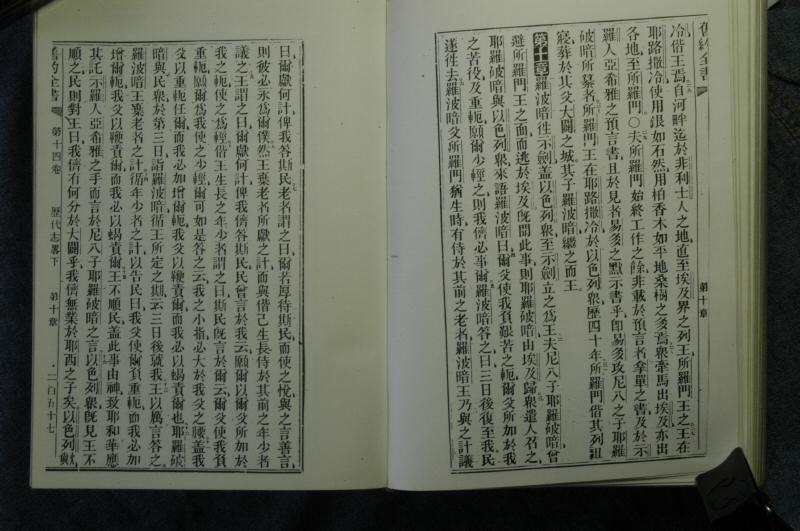 舊約全書
第十章
冷偕王焉自河畔迄於非利士人之地直至埃及界之列王所羅門王之王在
耶路撒冷使用銀如石然用柏香木如平地桑樹之多焉衆牽馬出埃及亦出
各地至所羅門○夫所羅門始終工作之餘非載於預言者拿單之書及於示
羅人亞希雅之預言書且於見者易多之默示書乎即易多攻尼八之子耶羅
破暗所纂者所羅門王在耶路撒冷於以色列衆歷四十年所羅門偕其列祖
寢葬於其父大闢之城其子羅波暗繼之而王
第十章羅波暗徃示劍蓋以色列衆至示劍立之爲王夫尼八子耶羅破暗曾
避所羅門王之面而逃於埃及旣聞此事則耶羅破暗由埃及歸衆遣人召之
耶羅破暗與以色列衆來語羅波暗曰爾父使我負艱苦之軛爾父所加於我
之苦役及重軛願爾少輕之則我儕必事爾羅波暗答之曰三日後復至我民
遂徃去羅波暗父所羅門猶生時有侍於其前之老者羅波暗王乃與之計議
曰爾獻何計俾我答斯民老者謂之曰爾若厚待斯民而使之悅與之言善言
則彼必永爲爾僕然王棄老者所獻之計而與偕己生長侍於其前之年少者
議之王謂之曰爾獻何計俾我儕答斯民民曾言於我云願爾以爾父所加於
我之軛使之爲輕偕王生長之年少者謂之曰斯民旣言於爾云爾父使我負
重軛願爾爲我使之少輕爾可如是答之云我之小指必大於我父之腰蓋我
父以重軛任爾而我必加增爾軛我父以鞭責爾而我必以蝎責爾也耶羅破
暗與民衆於第三日詣羅波暗循王所定之期云三日後就我王以厲言答之
羅波暗王棄老者之計循年少者之計以告民曰我父使爾負重軛而我必加
增爾軛我父以鞭責爾而我必以蝎責爾王不順民蓋此事由神致耶和華應
其託示羅人亞希雅之手而言於尼八子耶羅破暗之言以色列衆旣見王不
順之民則對王曰我儕有何分於大闢乎我儕無業於耶西之子矣以色列
舊約全書
第十四卷
歷代志畧下
第十章
二百五十七